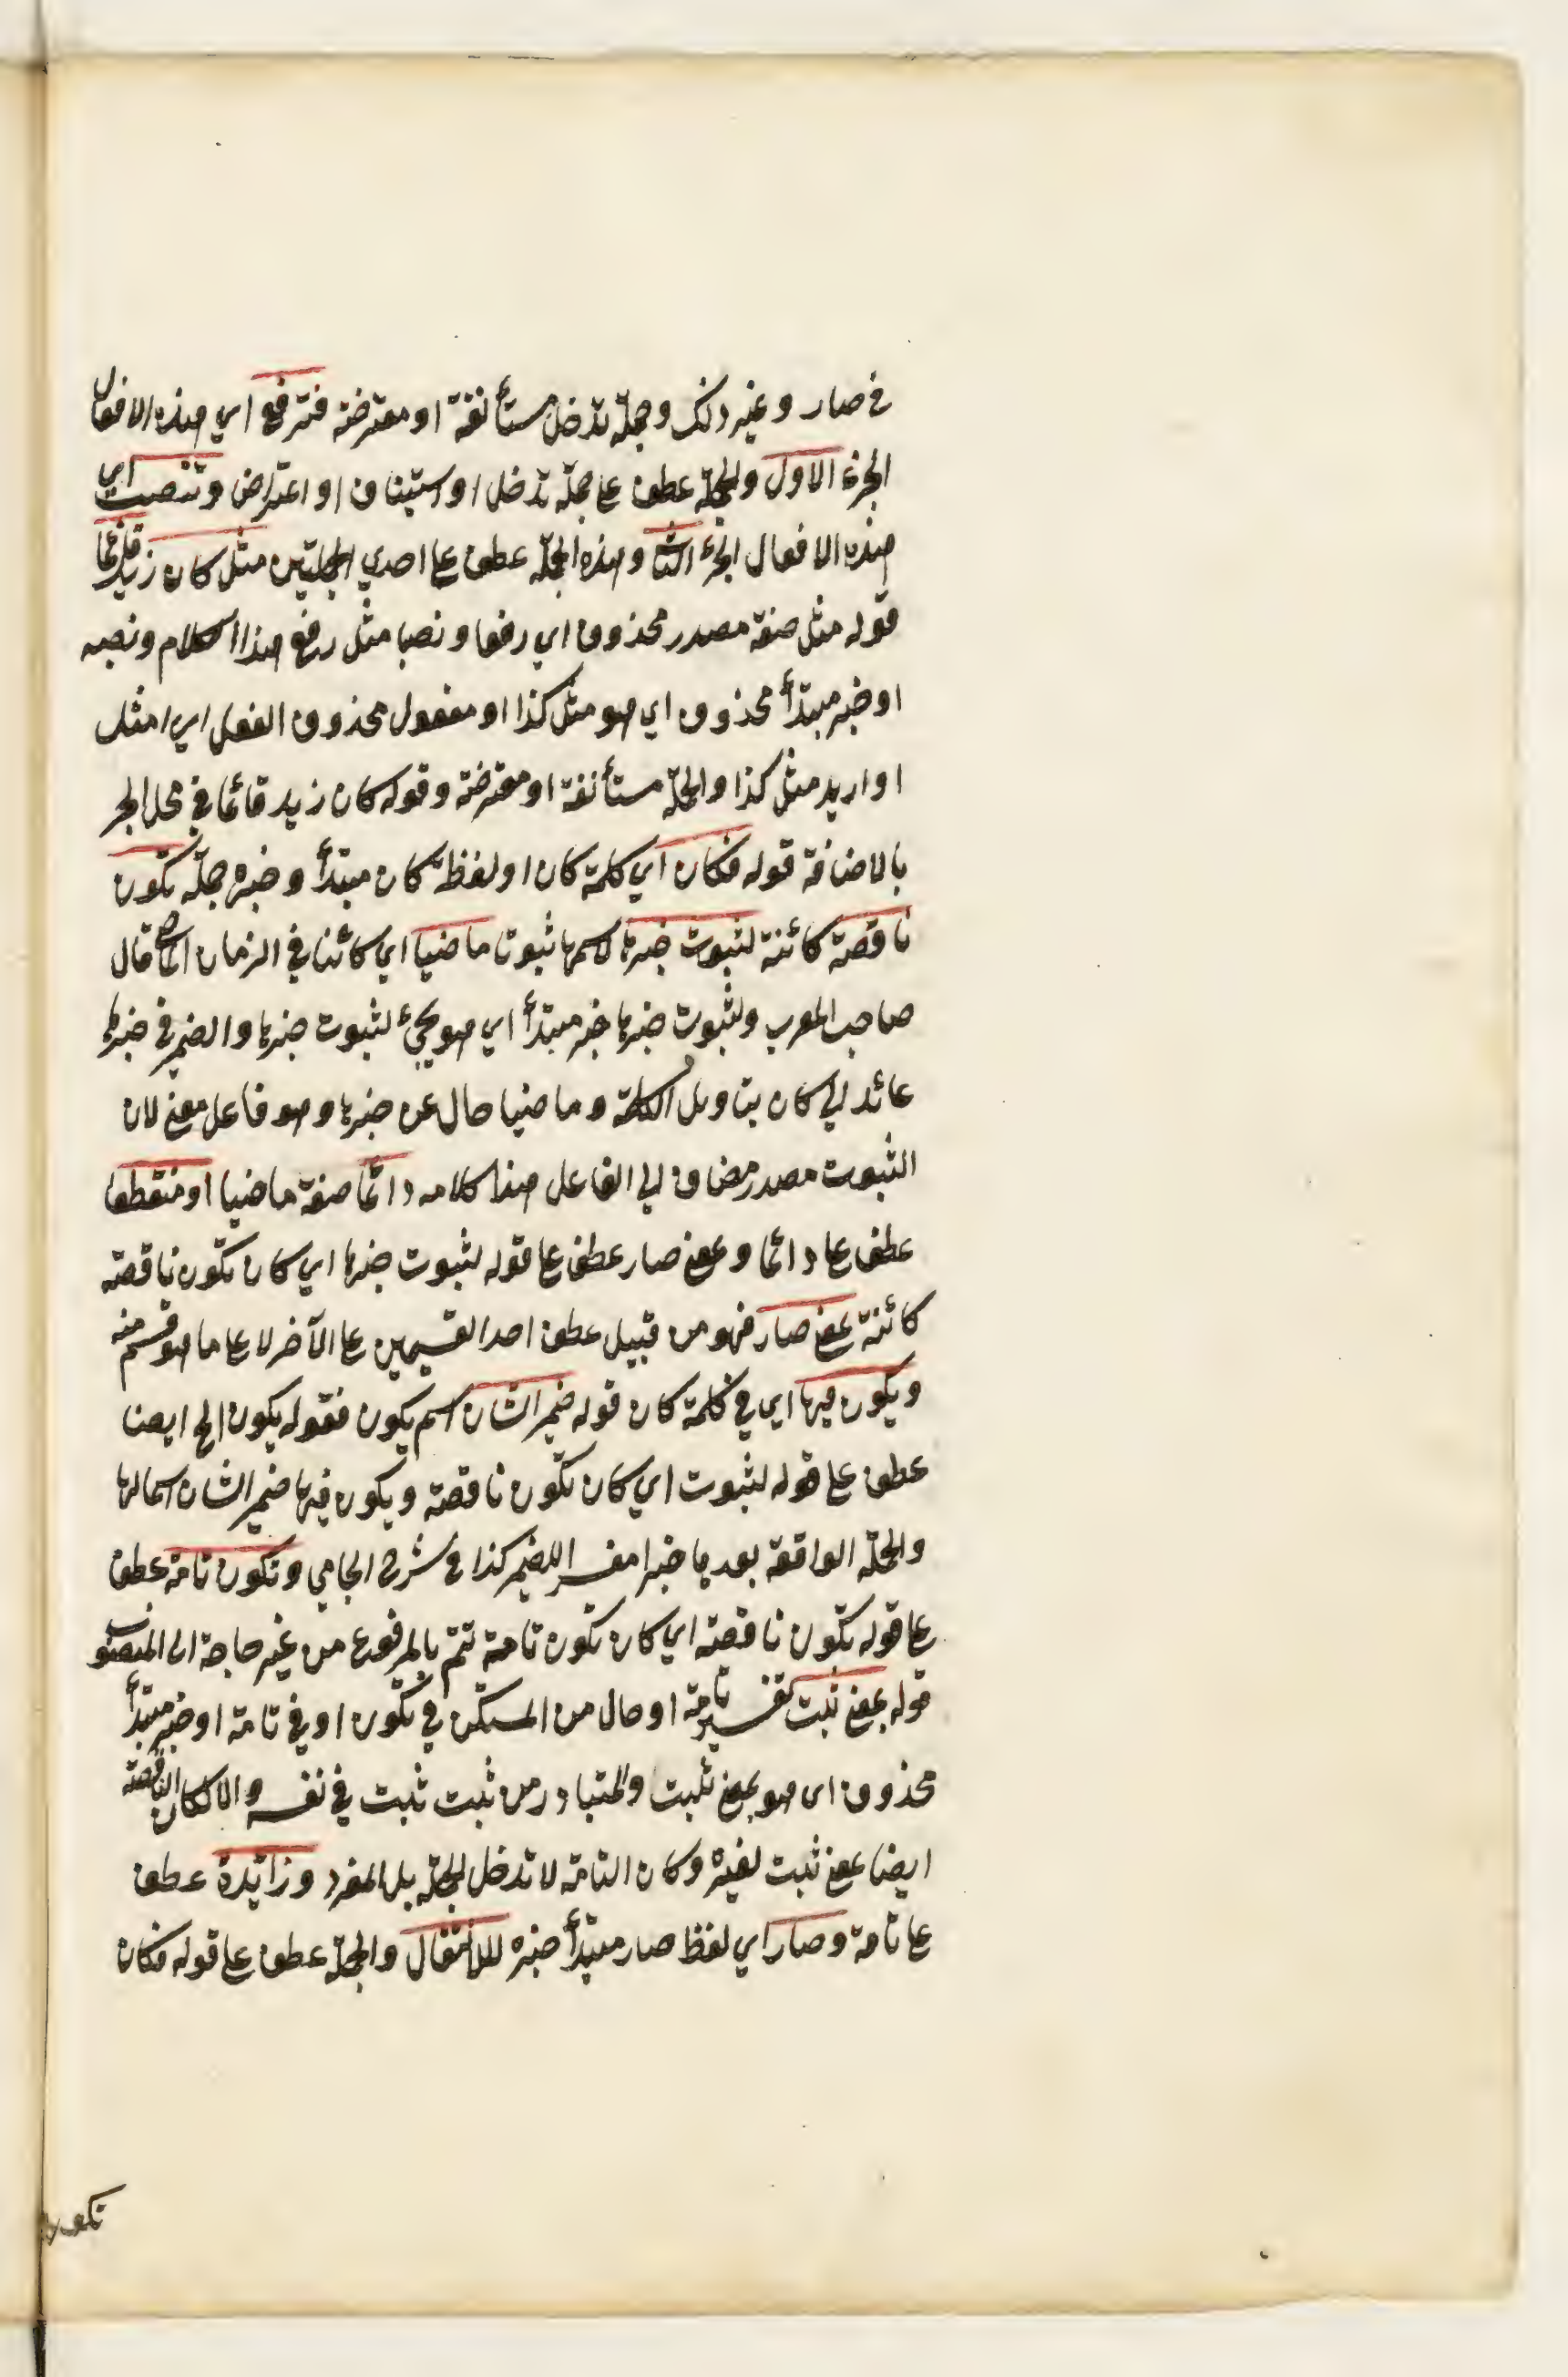 في صار وغير ذلك وجملة تدخل مستأنفة او معترضة فترفع اي هذه الافعال
الجزء الاول والجملة عطف على جملة تدخل او استيناف او اعتراض وتنصب اي
هذه الافعال الجزء الثاني وهذه الجملة عطف على احدي الجملتين مثل كان زيد قائما
قوله مثل صفة مصدر محذوف اي رفعا ونصبا مثل رفع هذا الكلام ونصبه
او خبر مبتدأ محذوف اي هو مثل كذا او مفعول محذوف الفعل اي امثل
او اريد مثل كذا والجملة مستأنفة او معترضة وقوله كان زيد قائما في محل الجر
بالاضافة قوله فكان اي كلمة كان او لفظة كان مبتدأ وخبره جملة تكون
ناقصة كائنة لثبوت خبرها لاسمها ثبوتا ماضيا اي كائنا في الزمان الماضي قال
صاحب المعرب ولثبوت خبرها خبر مبتدأ اي هو يجيئ لثبوت خبرها والضمير في خبرها
عائد الي كان بتاويل الكلمة وماضيا حال عن خبرها وهو فاعل معنى لان
الثبوت مصدر مضاف الي الفاعل هذا كلامه دائما صفة ماضيا او منقطعا
عطف على دائما وبمعنى صار عطف على قوله لثبوت خبرها اي كان تكون ناقصة
كائنة بمعنى صار فهو من قبيل عطف احد القسيمين على الآخر لا على ما هو قسم منه
ويكون فيها اي في كلمة كان قوله ضمير الشان اسم يكون فقوله يكون الخ ايضا
عطف على قوله لثبوت اي كان تكون ناقصة ويكون فيها ضمير الشان اسما لها
والجملة الواقعة بعدها خبرا مفسرا للضمير كذا في شرح الجامي وتكون تامة عطف
على قوله تكون ناقصة اي كان تكون تامة تتم بالمرفوع من غير حاجة الى المنصوب
قوله بمعنى ثبت تفسير تامة او حال من المستكن في تكون او في تامة او خبر مبتدأ
محذوف اى هو بمعنى ثبت والمتبادر من ثبت ثبت في نفسه والا لكان الناقصة
ايضا بمعنى ثبت لغيره وكان التامة لا تدخل الجملة بل المفرد وزائدة عطف
على تامة وصار اي لفظ صار مبتدأ خبره للانتقال والجملة عطف على قوله فكان
تكون